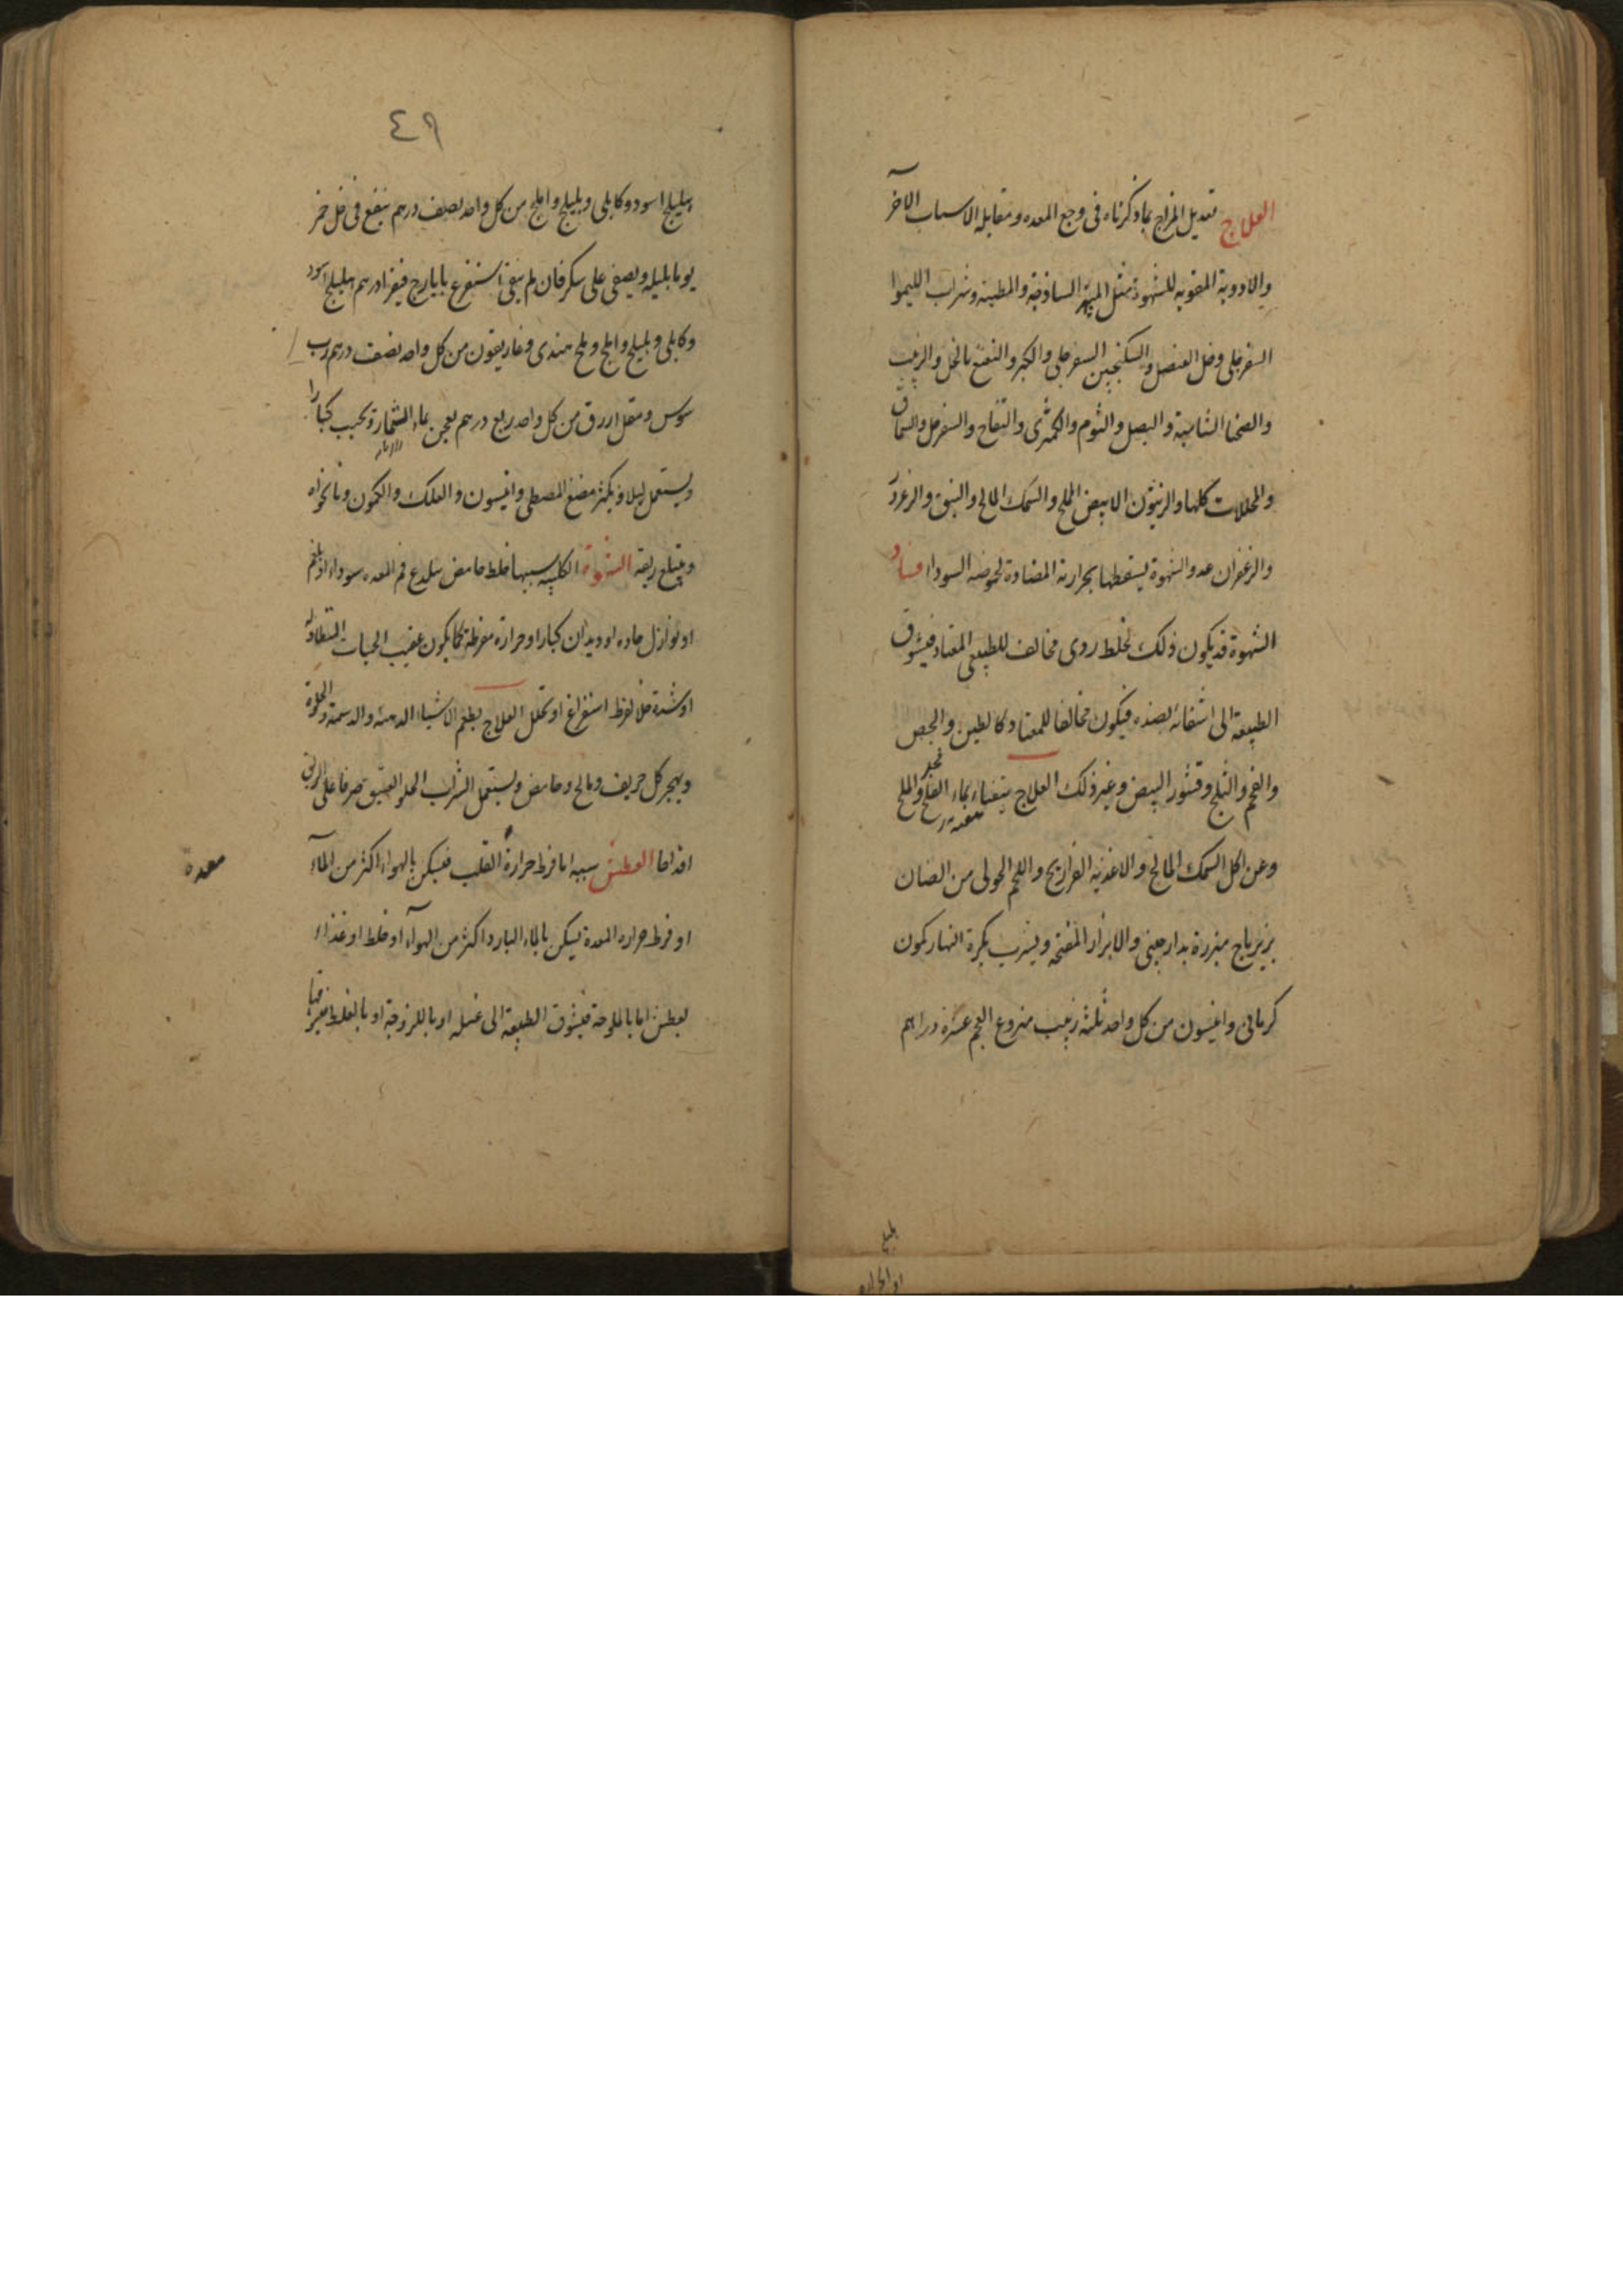 العلاج تعديل المزاج بما ذكرناه فى وجع المعده ومقابله الاسباب الآخر
والادوية المقويه للشهوة مثل الميبه الساذجة والمطيبه وشراب الليموا
السفرجلى وخل العنصل والسكنجبين السفرجلى والكبر والنعنع بالخل والزبيب
والصحنا الشامية والبصل والثوم والكمثرى والتفاح والسفرجل والسماق
والمخللات كلها والزيتون الابيض المملح والسمك المالح والنبق والزعرور
والزعفران عدو الشهوة يسقطها بحرارته المضادة لحموضه السودا فساد
الشهوة قد يكون ذلك لخلط ردى مخالف للطبيعى المعتاد فيتشوق
الطبيعه الى اشتفائه بضده فيكون مخالفا للمعتاد كالطين والجص
والفحم والثلج وقشور البيض وغير ذلك العلاج يتقياء بماء الفجل والملح
وعن اكل السمك المالح والاغذيه الفراريج واللحم الحولى من الضان
بزيرباج مبزرة بدارصينى والابزار المفتحه ويشرب بكرة النهار كمون
كرمانى وانيسون من كل واحد ثلثه زبيب منزوع العجم عشرة دراهم
٤٩
هليلج اسود وكابلى وبليلج واملج من كل واحد نصف درهم ينقع فى خل خمر
يوما بليله ويصفى على سكر فان لم ينقى استفرغ بايارج فيقرا درهم هليلج اسود
وكابلى وبليلج واملج وملح هندى وغاريقون من كل واحد نصف درهم رب
سوس ومقل ازرق من كل واحد ربع درهم يعجن بماء الشمارة ويحبب كبارا
ويستعمل ليلا ويكثر مضغ المصطكى وانيسون والعلك والكمون ونانخواه
ويبتلع ريقه الشهوة الكلبيه سببها خلط حامض يلدع فم المعده سوداء او بلغم
او نوازل حاده او ديدان كبار او حرارة مفرطة كما يكون عقيب الحميات المتطاوله
او شدة خلا لفرط استفراغ او تحلل العلاج يطعم الاشياء الدهنه والدسمة والحلوة
ويهجر كل حريف ومالح وحامض ويستعمل الشراب الحلو العتيق صرفا على الريق
اقداحا العطش سببه اما فرط حرارة القلب فيسكن بالهواء اكثر من المآء
معدة
او فرط حراره المعدة يسكن بالماء البارد اكثر من الهوآء او خلط او غذاء
يعطش اما بالملوحة فيتشوق الطبيعة الى غسله او باللزوجة او بالغلظ